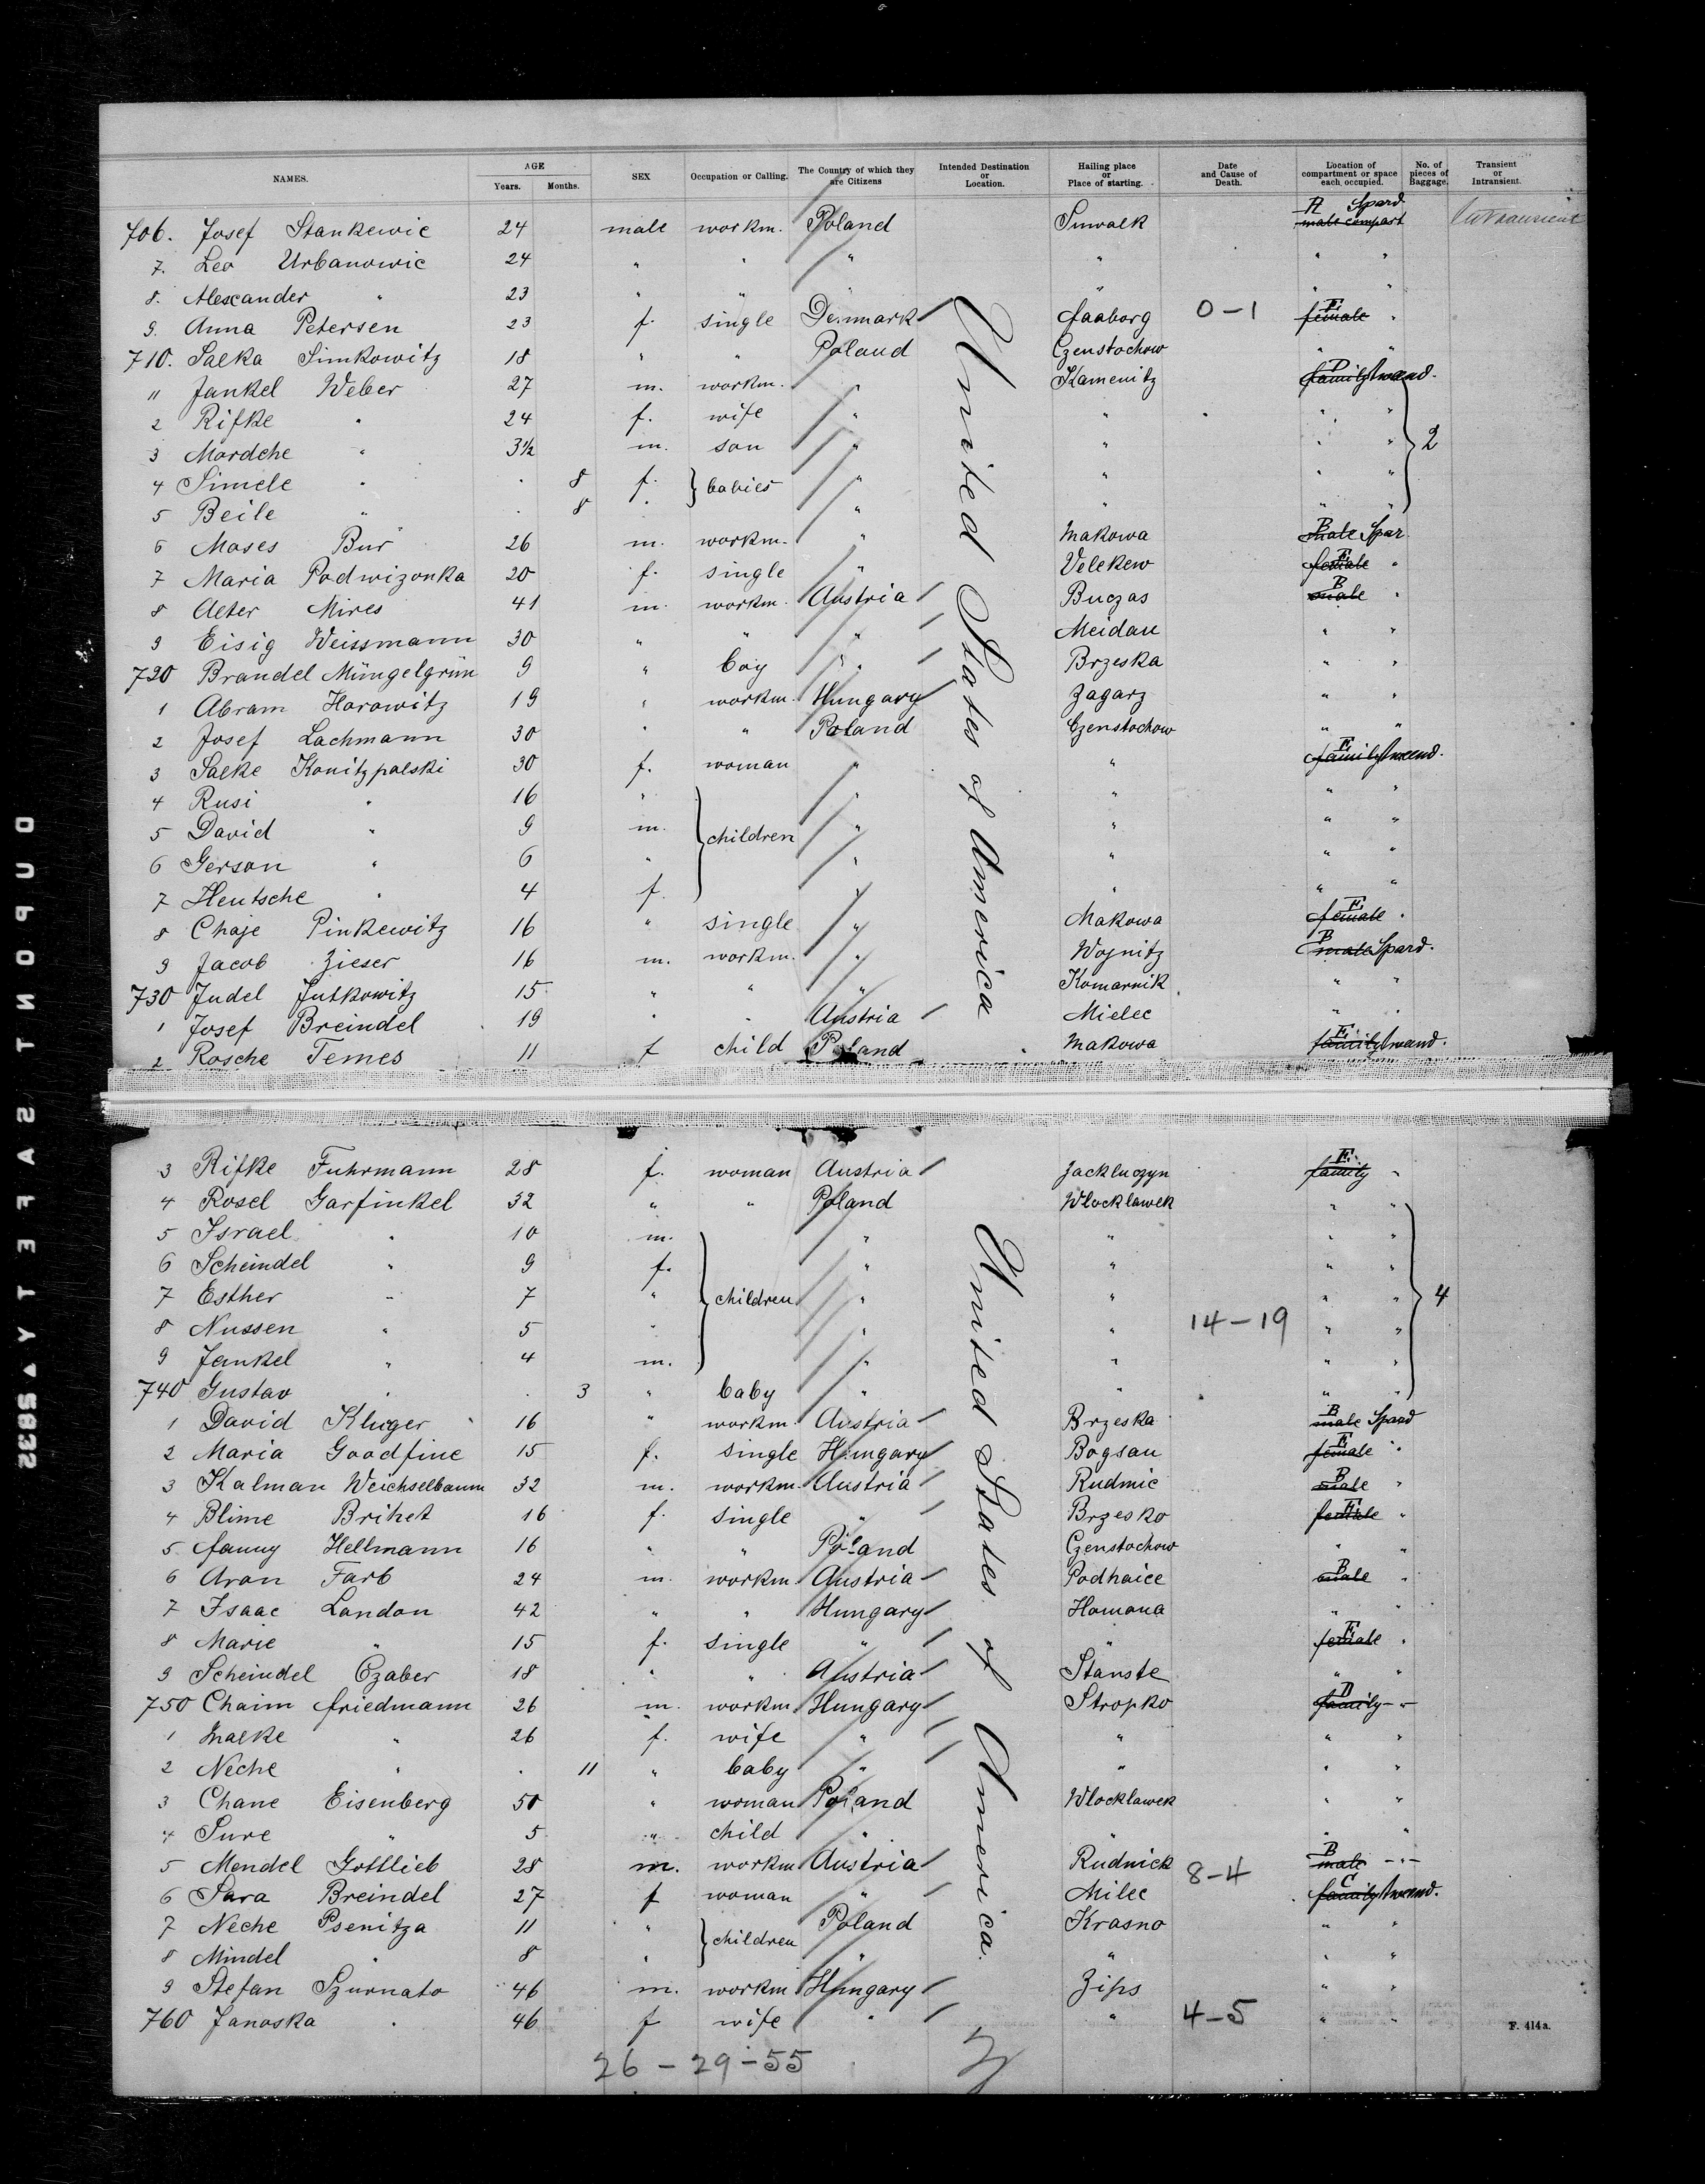 NAMES. AGE Years. Months. SEX Occupation or Calling. The Country of which they are Citizens Intended Destination or Location. Hailing place or Place of starting. Date and Cause of Death. Location of compartment or space each occupied. No. of pieces of Baggage. Transient or Intransient.
706. Josef Stankewic 24 male workm. Poland Suwalk A male compart Spard Intransient
7. Leo Urbanowic 24 " " " " " "
8. Alexander " 23 " " " " "
9. Anna Petersen 23 f. single Denmark Faaborg 0-1 E female "
710. Salka Simkowitz 18 " " Poland Czenstochow " "
11 Jankel Weber 27 m. workm. " Kamenitz D family
2 Rifke " 24 f. wife " " " "
3 Mordche " 3½ m. son " " " "
4 Simele " . 8 f. babies " " " " 2
5 Beile " . 8 " " " " "
6 Moses Bur 26 m. workm. " Makowa B male Spar
7 Maria Podwizonka 20 f. single " Velekew E female "
8 Alter Mires 41 m. workm. Austria Buczas B male "
9 Eisig Weissmann 30 " " " Meidan " "
720 Brandel Müngelgrün 9 " boy " Brzeska " "
1 Abram Horowitz 19 " workm. Hungary Zagarz " "
2 Josef Lachmann 30 " " Poland Czenstochow " "
3 Salke Konitzpalski 30 f. woman " " E family
4 Rusi " 16 " " " " "
5 David " 9 m. children " " " "
6 Gerson " 6 " " " " "
7 Hentsche " 4 f. " " " "
8 Chaje Pinkewitz 16 " single " Makowa E female "
9 Jacob Zieser 16 m. workm. " Wojnitz B male Spard.
730 Judel Jutkowitz 15 " " " Komarnik " "
1 Josef Breindel 19 " " Austria Mielec " "
2 Rosche Temes 11 f child Poland Makowa E family
United States of America
3 Rifke Fuhrmann 28 f. woman Austria Jackluczyn E family "
4 Rosel Garfinkel 32 " " Poland Wlocklawek " "
5 Israel " 10 m. " " " "
6 Scheindel " 9 f. " " " "
7 Esther " 7 " children " " " " 4
8 Nussen " 5 " " " 14-19 " "
9 Jankel " 4 m. " " " "
740 Gustav " . 3 " baby " " " "
1 David Kluger 16 " workm. Austria Brzeska B male Spard
2 Maria Goodfine 15 f. single Hungary Bogsau E female "
3 Kalman Weichselbaum 32 m. workm. Austria Rudmic B male "
4 Blime Brihet 16 f. single " Brzesko E female "
5 Fanny Hellmann 16 " " Poland Czenstochow " "
6 Aron Farb 24 m. workm. Austria Podhaice B male "
7 Isaac Landon 42 " " Hungary Homona " "
8 Marie " 15 f. single " " E female "
9 Scheindel Czaber 18 " " Austria Stanste " "
750 Chaim Friedmann 26 m. workm Hungary Stropko D family - " -
1 Malke " 26 f. wife " " " "
2 Neche " . 11 " baby " " " "
3 Chane Eisenberg 50 " woman Poland Wlocklawek " "
4 Sure " 5 " child " " " "
5 Mendel Gottlieb 28 m. workm Austria Rudnick 8-4 B male - " -
6 Sara Breindel 27 f woman " Milec C family
7 Neche Psenitza 11 " children Poland Krasno " "
8 Mindel " 8 " " " " "
9 Stefan Szurnato 46 m. workm Hungary Zips " "
760 Janoska " 46 f wife " " 4-5 " "
United States of America.
26 - 29 - 55
F. 414a.
DUPONT SAFETY 2532